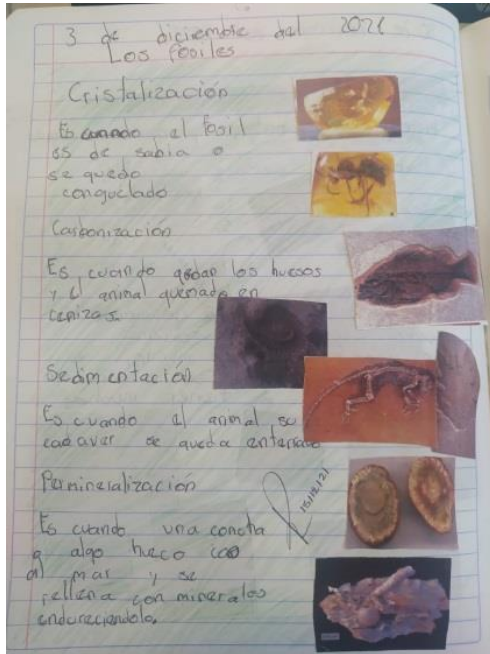 3 de diciembre del 2021
Los fósiles
Cristalización
Es cuando el fosil
es de sabia o
se quedo
conguelado
Carbonización
Es cuando qedan los huesos
y el animal quemado en
cenizas.
Sedimentación
Es cuando el animal su
cadaver se queda enterrado
Permineralización
Es cuando una concha
o algo hueco cae
al mar y se
rellena con minerales
endureciendola.
15/12/21